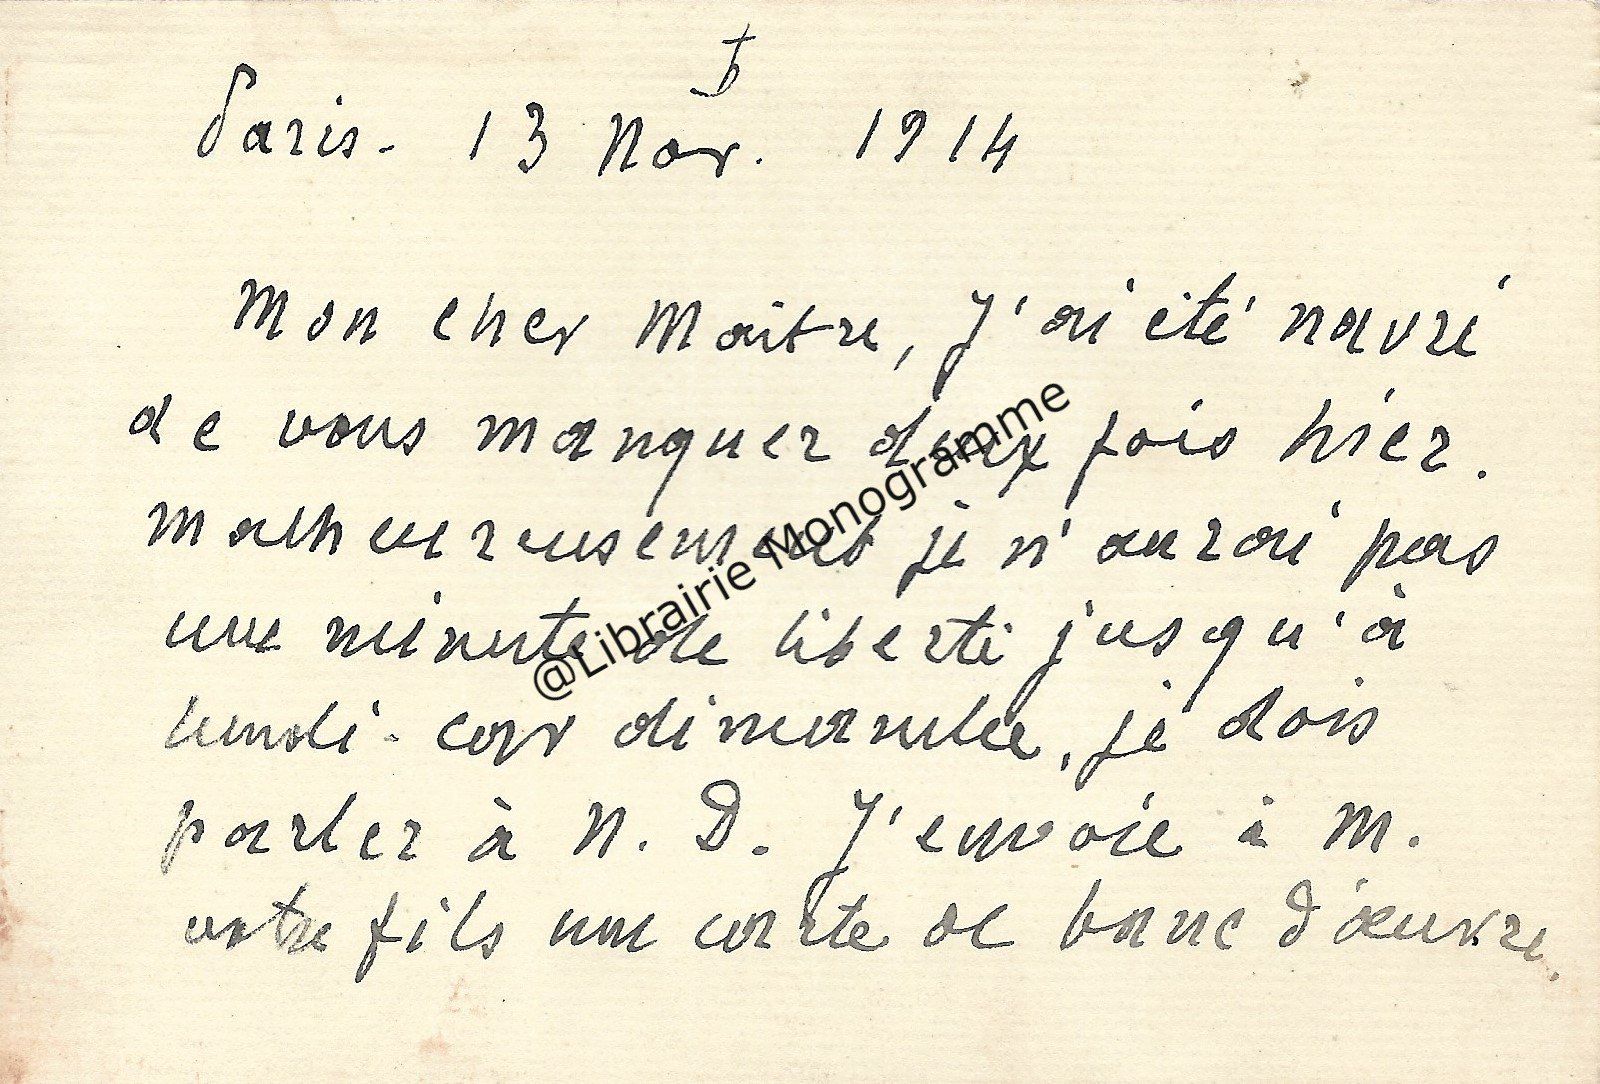 Paris - 13 Nov. 1914
Mon cher Maître, J'ai été navré
de vous manquer deux fois hier.
Malheureusement je n'aurai pas
une minute de liberté jusqu'à
lundi - car dimanche, je dois
parler à N. D. J'envoie à M.
votre fils une carte de banc d'œuvre.
@Librairie Monogramme